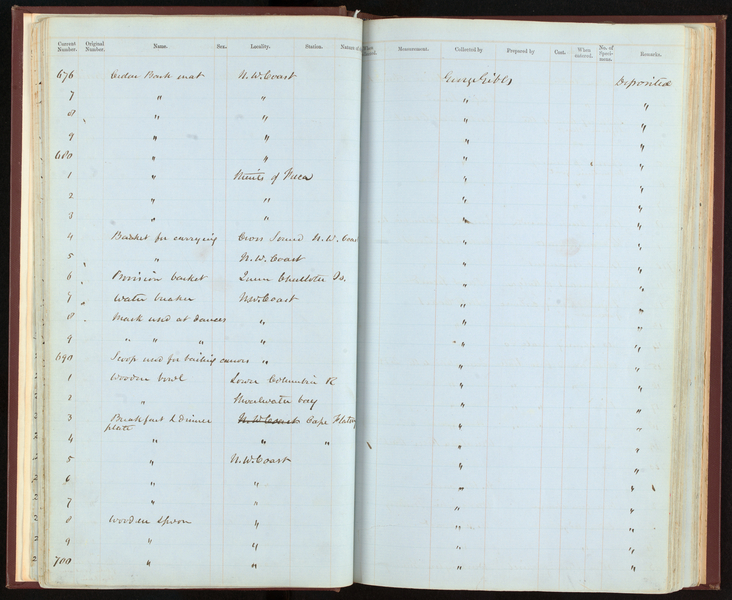 Current Number. Original Number. Name. Sex. Locality. Station. Nature of When Measured. Measurement. Collected by Prepared by Cost. When entered. No. of Specimens. Remarks.
676 Cedar Bark mat N.W. Coast George Gibbs Deposited
7 " " " "
8 " " " "
9 " " " "
680 " " " "
1 " Straits of Fuca " "
2 " " " "
3 " " " "
4 Basket for carrying Cross Sound N.W. Coast " "
5 " N.W. Coast " "
6 Provision basket Queen Charlotte Is. " "
7 Water bucket N.W. Coast " "
8 Mask used at dances " " "
9 " " " " " "
690 Scoop used for bailing canoes " " "
1 Wooden bowl Lower Columbia R " "
2 " Shoalwater bay " "
3 Breakfast & dinner N.W. Coast Cape Flattery " "
plate
4 " " " " "
5 " N.W. Coast " "
6 " " " "
7 " " " "
8 Wooden spoon " " "
9 " " " "
700 " " " "